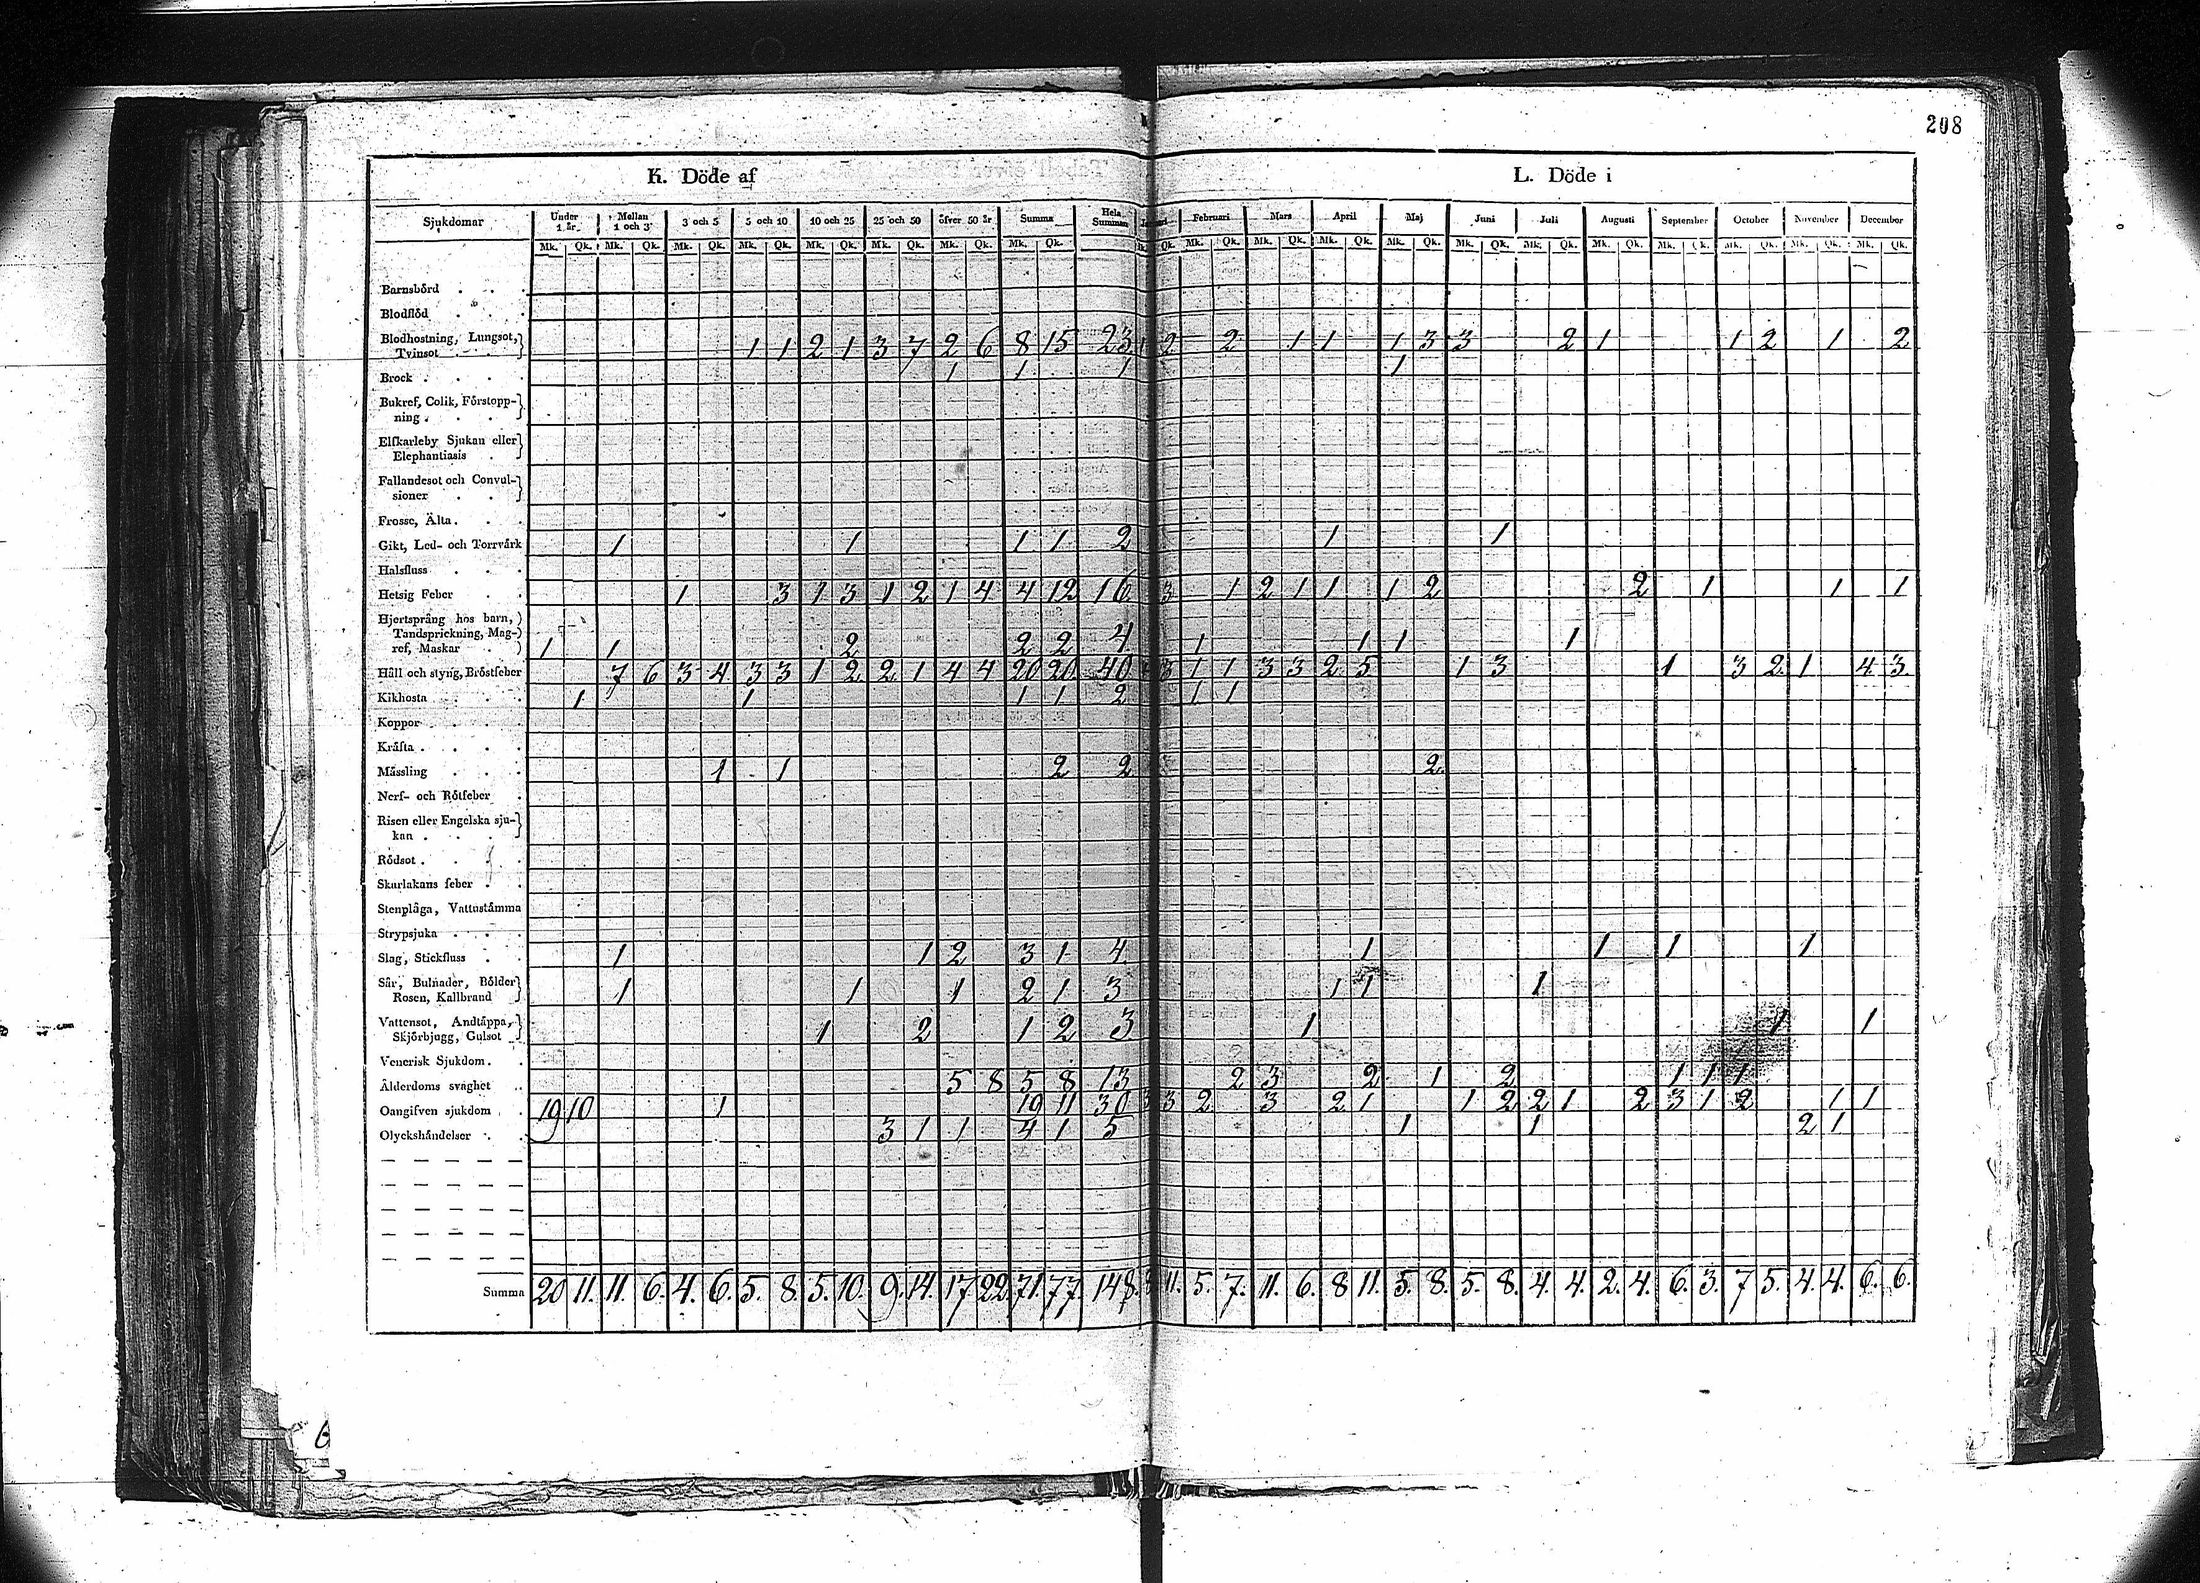 208
K. Döde af L. Döde i
Sjukdomar Under 1 år Mellan 1 och 3 3 och 5 5 och 10 10 och 25 25 och 50 öfver 50 år Summa Hela Summan Februari Mars April Maj Juni Juli Augusti September October November December
Mk. Qk. Mk. Qk. Mk. Qk. Mk. Qk. Mk. Qk. Mk. Qk. Mk. Qk. Mk. Qk. Qk. Mk. Qk. Mk. Qk. Mk. Qk. Mk. Qk. Mk. Qk. Mk. Qk. Mk. Qk. Mk. Qk. Mk. Qk. Mk. Qk. Mk. Qk.
Barnsbörd
Blodflöd
Blodhostning, Lungsot,
Tvinsot 1 1 2 1 3 7 2 6 8 15 23 1 2 2 1 1 1 3 3 2 1 1 2 1 2
Brock 1 1 1 1
Bukref, Colik, Förstopp-
ning
Elfkarleby Sjukan eller
Elephantiasis
Fallandesot och Convul-
sioner
Frosse, Älta
Gikt, Led- och Torrvärk 1 1 1 1 2 1 1
Halsfluss
Hetsig Feber 1 3 1 3 1 2 1 4 4 12 16 3 1 2 1 1 1 2 2 1 1 1
Hjertsprång hos barn,
Tandsprickning, Mag-
ref, Maskar 1 1 2 2 2 4 1 1 1 1
Håll och styng, Bröstfeber 7 6 3 4 3 3 1 2 2 1 4 4 20 20 40 4 3 1 1 3 3 2 5 1 3 1 3 2 1 4 3
Kikhosta 1 1 1 1 2 1 1
Koppor
Kräfta
Mässling 1 1 2 2 2
Nerf- och Rötfeber
Risen eller Engelska sju-
kan
Rödsot
Skarlakans feber
Stenplåga, Vattustämma
Strypsjuka
Slag, Stickfluss 1 1 2 3 1 4 1 1 1 1
Sår, Bulnader, Bölder
Rosen, Kallbrand 1 1 1 2 1 3 1 1 1
Vattensot, Andtäppa,
Skjörbjugg, Gulsot 1 2 1 2 3 1 1 1
Venerisk Sjukdom
Ålderdoms svaghet 5 8 5 8 13 2 3 2 1 2 1 1 1
Oangifven sjukdom 19 10 1 19 11 30 3 3 2 3 2 1 1 2 2 1 2 3 1 2 1 1
Olyckshändelser 3 1 1 4 1 5 1 1 2 1
Summa 20 11. 11. 6. 4. 6. 5. 8. 5. 10. 9. 14. 17 22 71. 77. 148. 11. 5. 7. 11. 6. 8 11. 5. 8. 5. 8. 4. 4. 2. 4. 6. 3. 7 5. 4. 4. 6. 6.